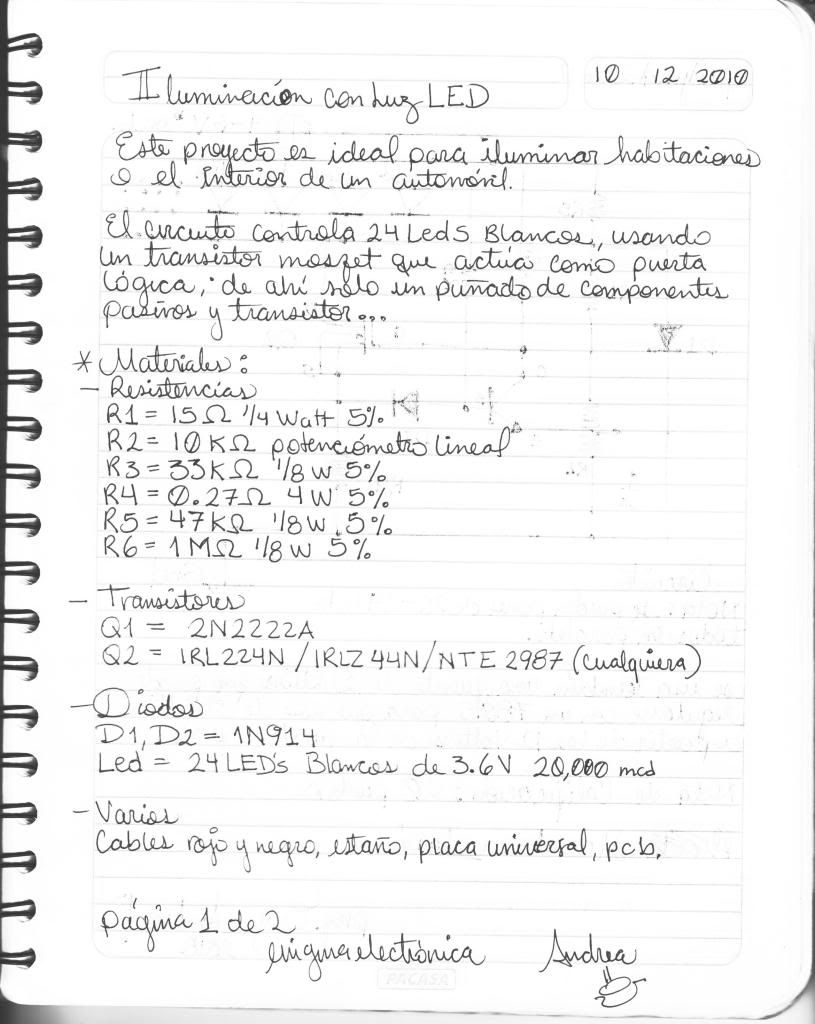 Iluminación con Luz LED
10 12 2010
Este proyecto es ideal para iluminar habitaciones
o el interior de un automóvil.
El circuito controla 24 Leds Blancos, usando
un transistor moszfet que actúa como puerta
lógica, de ahí solo un puñado de componentes
pasivos y transistor...
* Materiales:
- Resistencias
R1 = 15 Ω 1/4 Watt 5%
R2 = 10 KΩ potenciómetro lineal
R3 = 33KΩ 1/8 w 5%
R4 = 0.27Ω 4W 5%
R5 = 47KΩ 1/8 w 5%
R6 = 1 MΩ 1/8 w 5%
- Transistores
Q1 = 2N2222A
Q2 = IRL224N / IRLZ 44N / NTE 2987 (cualquiera)
- Diodos
D1, D2 = 1N914
Led = 24 LED's Blancos de 3.6V 20,000 mcd
- Varios
Cables rojo y negro, estaño, placa universal, pcb.
página 1 de 2
enigmaelectrónica Andrea
PACASA